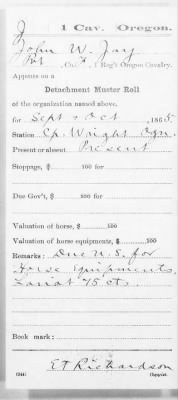 J 1 Cav. Oregon.
John W. Jay
Pvt, Co. , Reg't Oregon Cavalry.
Appears on a
Detachment Muster Roll
of the organization named above.
for Sept & Oct, 1865.
Station Cp. Wright Ogn.
Present or absent Present
Stoppage, $ 100 for
Due Gov't, $ 100 for
Valuation of horse, $ 100
Valuation of horse equipments, $ 100
Remarks: Due U.S. for
Horse equipments.
Lariat 75 cts.
Book mark:
E T Richardson
(344) Copyist.